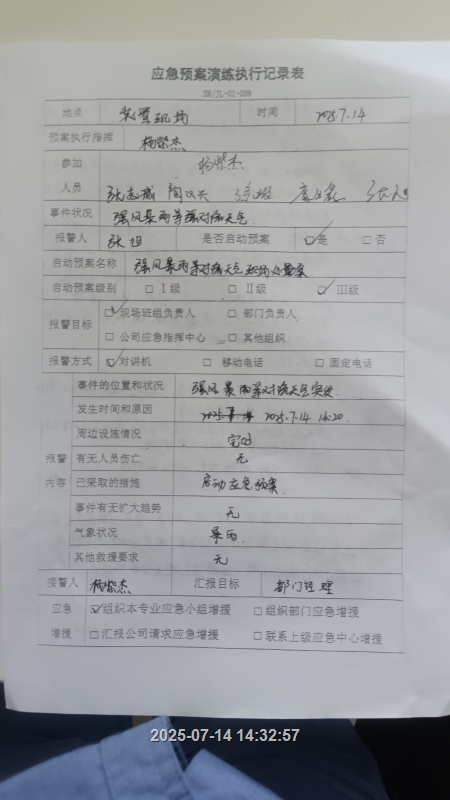 应急预案演练执行记录表
SR/JL-01-099
地点 装置现场 时间 2025.7.14
预案执行指挥 杨紫杰
参加 杨紫杰
人员 张志威
事件状况 强风暴雨等强对流天气
报警人 张旭 是否启动预案 ☑是 □否
启动预案名称 强风暴雨等对流天气现场处置案
启动预案级别 □ I级 □ II级 ☑ III级
报警目标 ☑现场班组负责人 □ 部门负责人
□ 公司应急指挥中心 □ 其他组织
报警方式 ☑对讲机 □ 移动电话 □ 固定电话
事件的位置和状况 强风暴雨等对流天气突发
发生时间和原因 2025.7-14 14:20
周边设施情况 完好
报警 有无人员伤亡 无
内容 已采取的措施 启动应急预案
事件有无扩大趋势 无
气象状况 暴雨
其他救援要求 无
接警人 杨紫杰 汇报目标 部门经理
应急 ☑组织本专业应急小组增援 □组织部门应急增援
增援 □汇报公司请求应急增援 □联系上级应急中心增援
2025-07-14 14:32:57